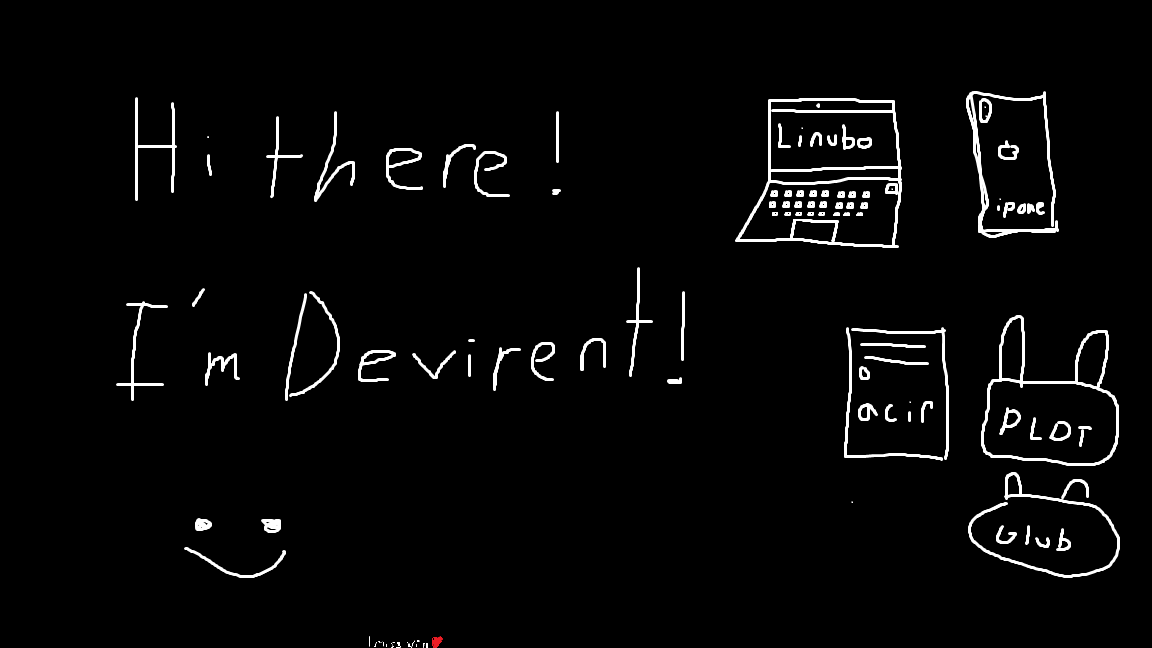 Hi there!
I'm Devirent!
Linubo
ipone
acir
PLDT
Glub
I miss vin